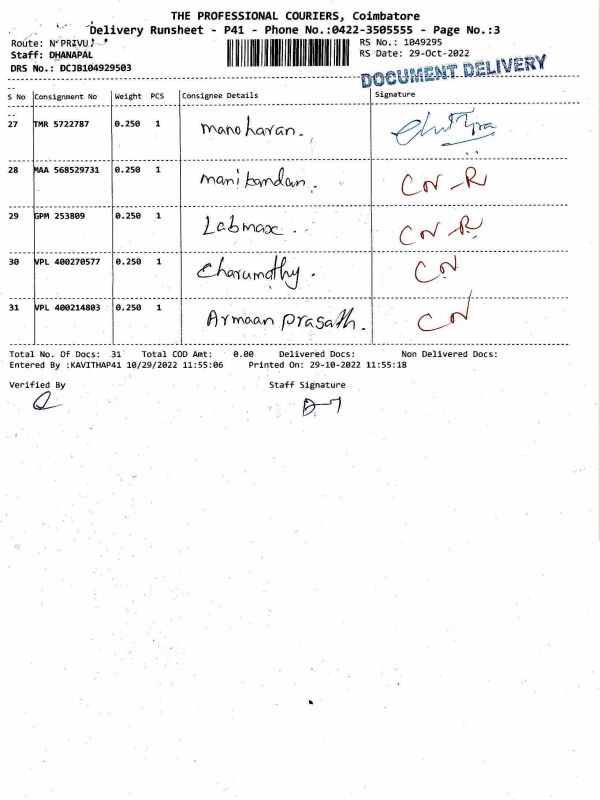 THE PROFESSIONAL COURIERS, Coimbatore
Delivery Runsheet - P41 - Phone No.:0422-3505555 - Page No.:3
Route: N PRIVU RS No.: 1049295
Staff: DHANAPAL RS Date: 29-Oct-2022
DRS No.: DCJB104929503 DOCUMENT DELIVERY
S No Consignment No Weight PCS Consignee Details Signature
27 TMR 5722787 0.250 1 manoharan. Chithra
28 MAA 568529731 0.250 1 manikandan. CN-R
29 GPM 253809 0.250 1 Labmax .. CN-R
30 VPL 400270577 0.250 1 Charumathy. CN
31 VPL 400214803 0.250 1 Armaan Prasath. CN
Total No. Of Docs: 31 Total COD Amt: 0.00 Delivered Docs: Non Delivered Docs:
Entered By :KAVITHAP41 10/29/2022 11:55:06 Printed On: 29-10-2022 11:55:18
Verified By Staff Signature